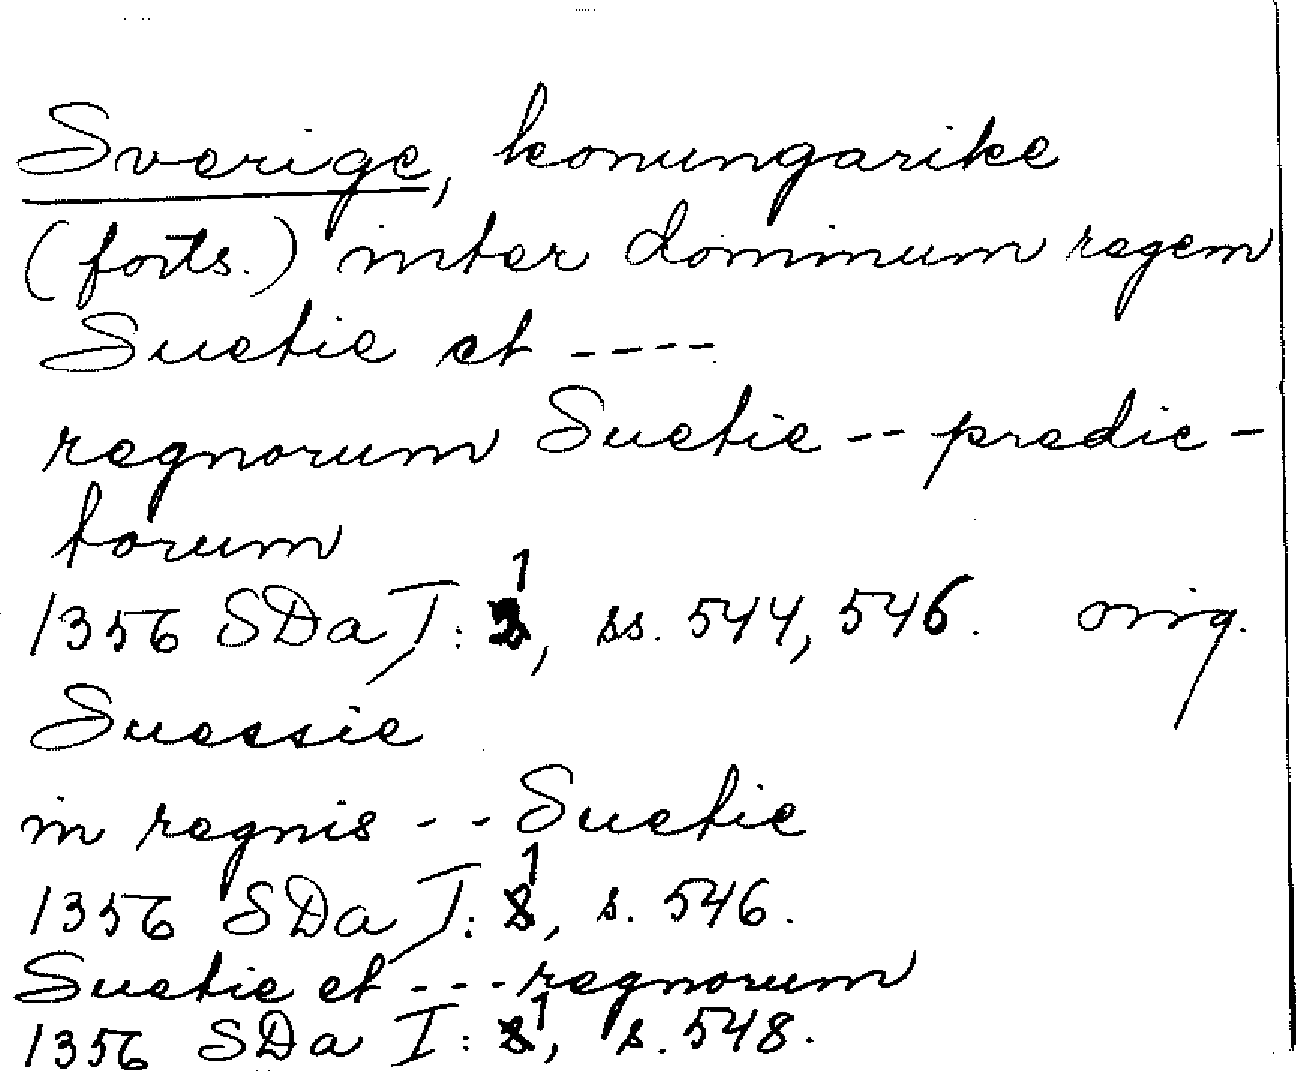 Sverige, konungarike
(forts.) inter dominum regem
Suetie et ----
regnorum Suetie -- predic-
torum
1356 SDa I: 1, ss. 544, 546. orig.
Suessie
in regnis -- Suetie
1356 SDa I: 1, s. 546.
Suetie et --- regnorum
1356 SDa I: 1, s. 548.